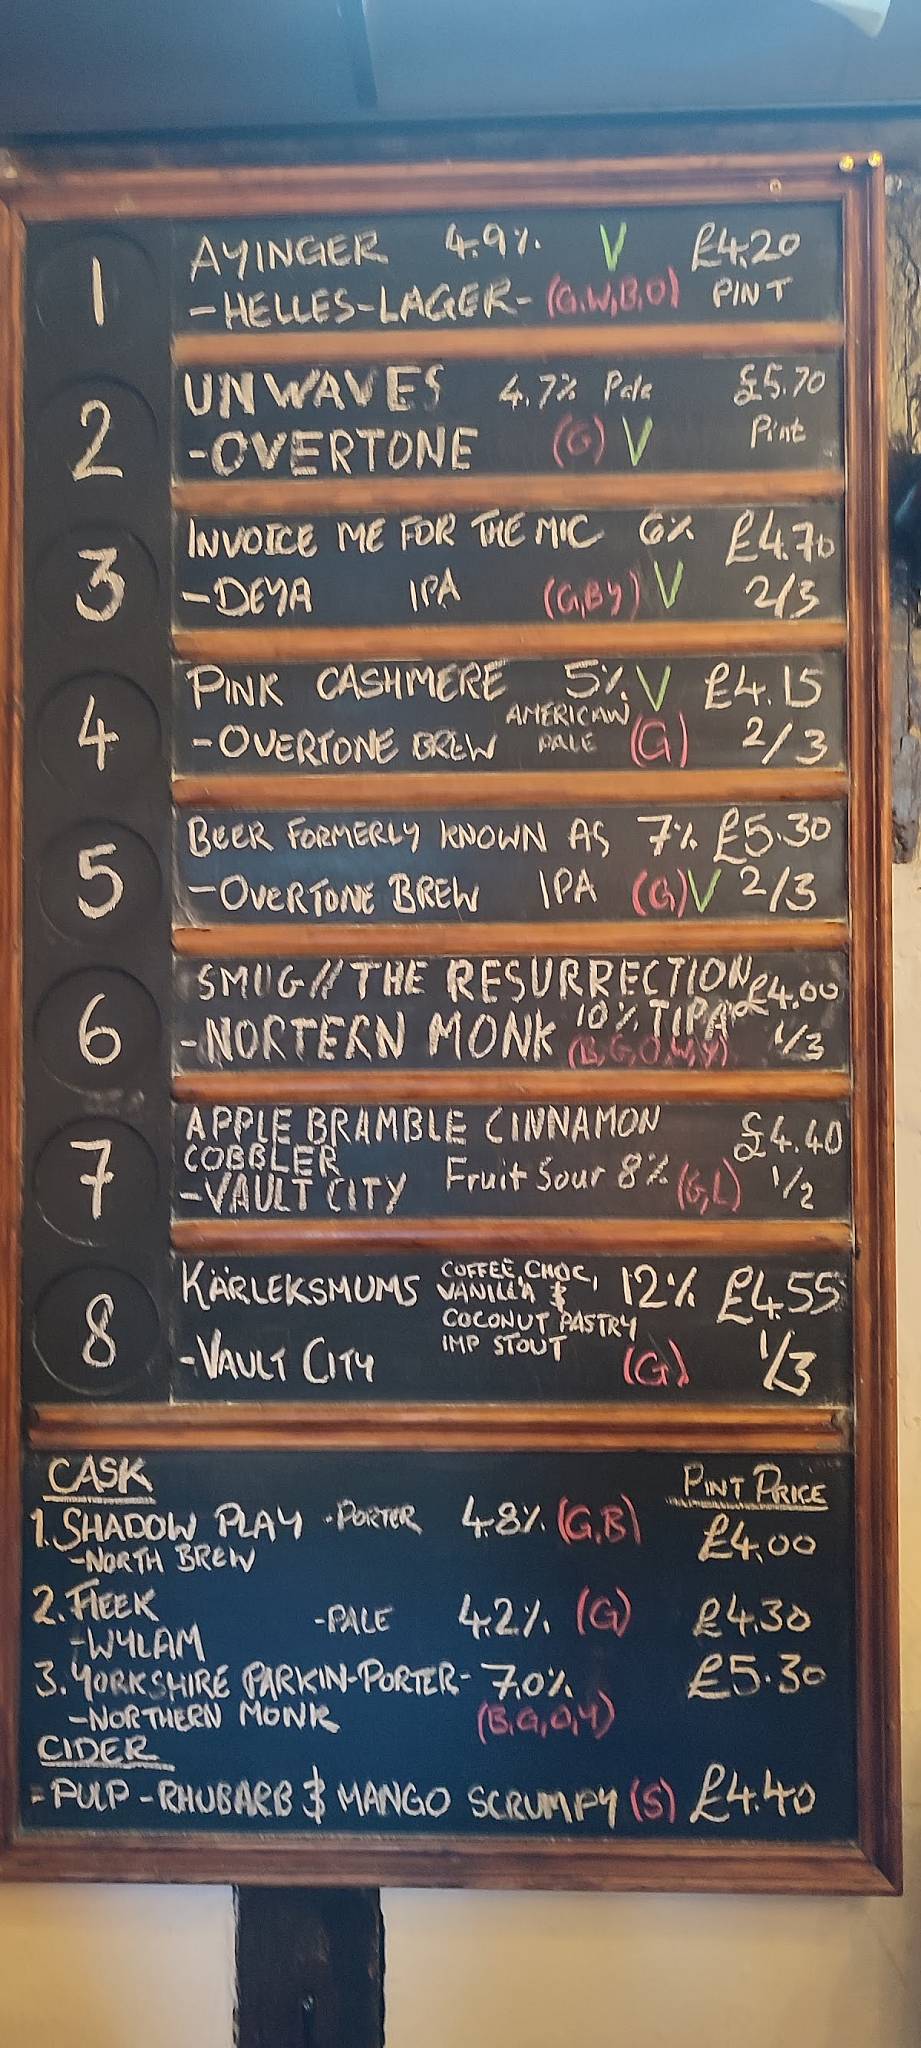 1 AYINGER 4.9% V £4.20
-HELLES-LAGER- (G,W,B,O) PINT
2 UNWAVES 4.7% Pale £5.70
-OVERTONE (G) V Pint
3 INVOICE ME FOR THE MIC 6% £4.70
-DEYA IPA (G,B,Y) V 2/3
4 PINK CASHMERE 5% V £4.15
-OVERTONE BREW AMERICAN PALE (G) 2/3
5 BEER FORMERLY KNOWN AS 7% £5.30
-OVERTONE BREW IPA (G) V 2/3
6 SMUG// THE RESURRECTION £4.00
-NORTERN MONK 10% TIPA (B,G,O,W,Y) 1/3
7 APPLE BRAMBLE CINNAMON £4.40
COBBLER
-VAULT CITY Fruit Sour 8% (G,L) 1/2
8 KÄRLEKSMUMS COFFEE, CHOC, 12% £4.55
VANILLA &
COCONUT PASTRY
IMP STOUT
-VAULT CITY (G) 1/3
CASK PINT PRICE
1. SHADOW PLAY -PORTER 4.8% (G,B) £4.00
-NORTH BREW
2. FLEEK -PALE 4.2% (G) £4.30
-WYLAM
3. YORKSHIRE PARKIN-PORTER- 7.0% £5.30
-NORTHERN MONK (B,G,O,Y)
CIDER
- PULP - RHUBARB & MANGO SCRUMPY (S) £4.40